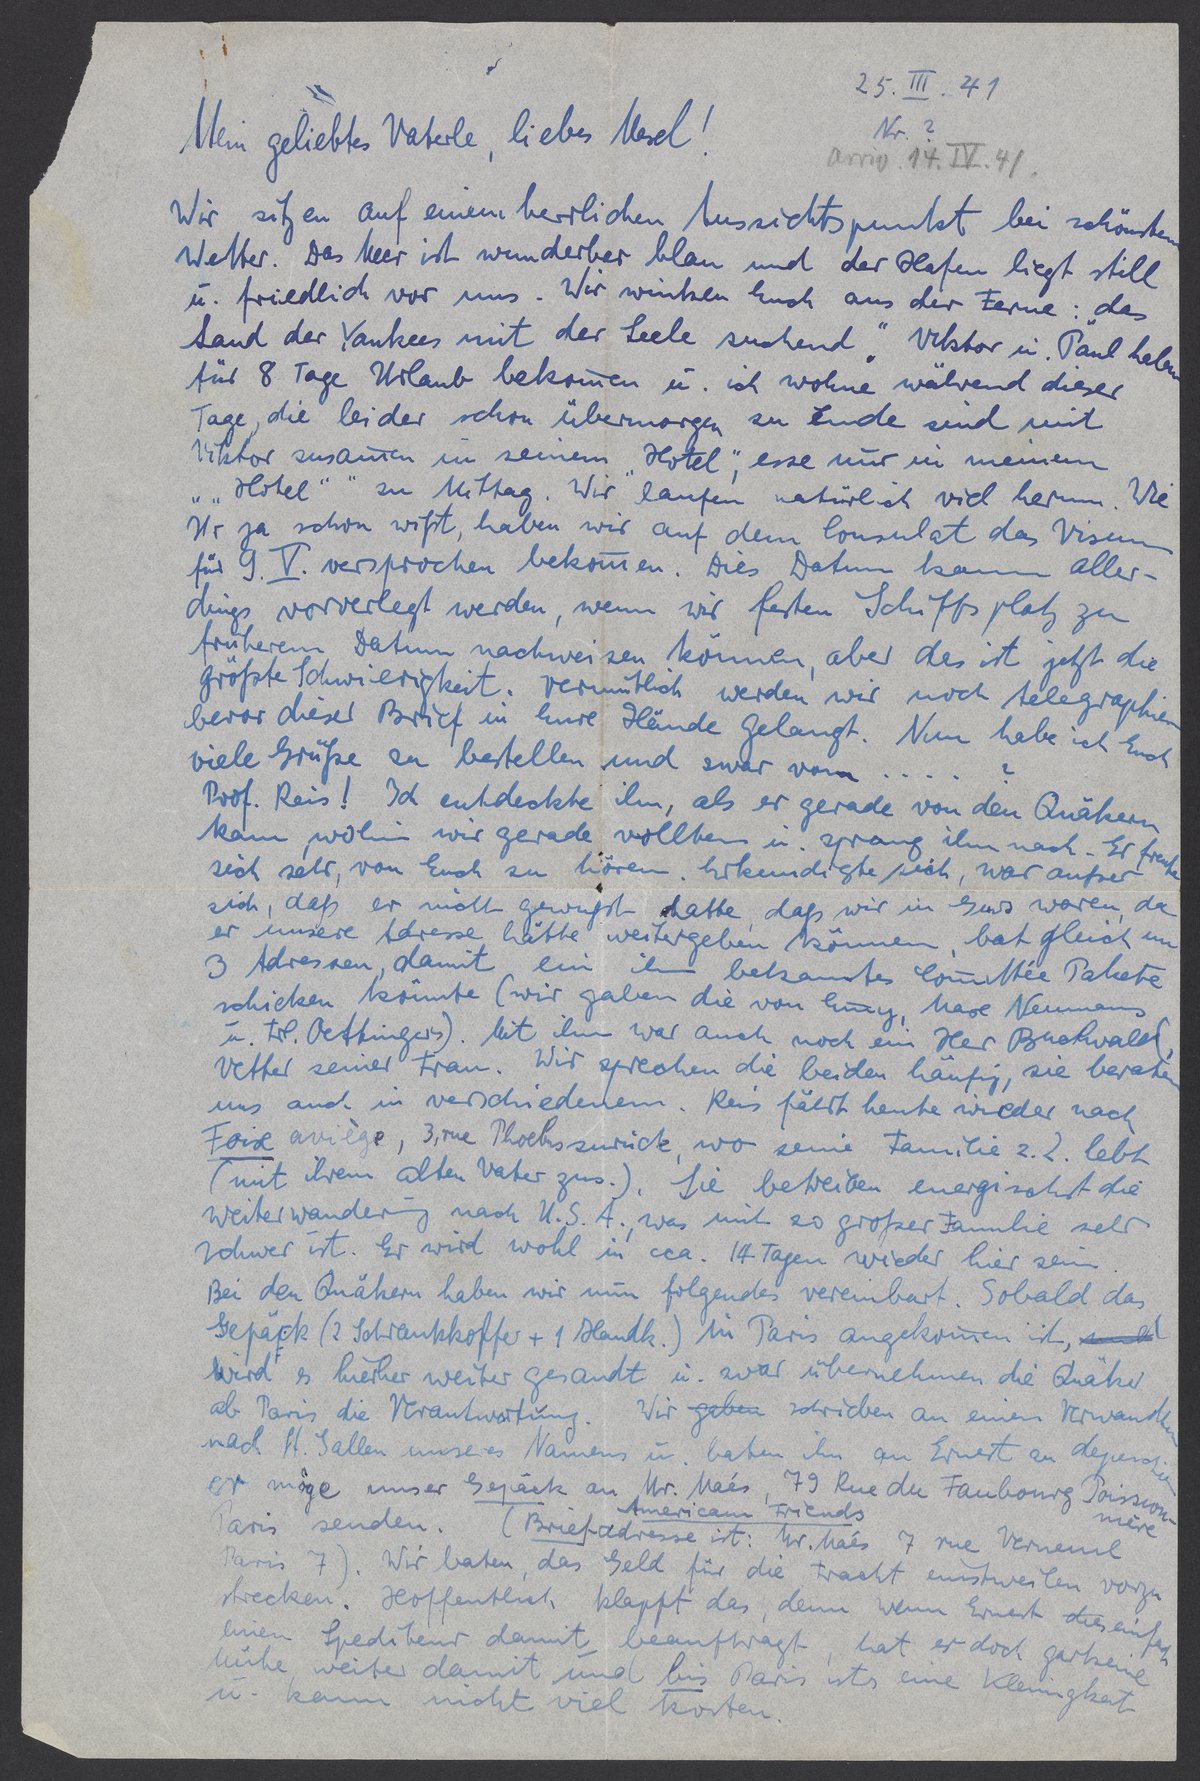 25. III. 41
Nr. ?
arriv. 14. IV. 41.
Mein geliebtes Vaterle, liebes Mesel!
Wir sitzen auf einem herrlichen Aussichtspunkt bei schönstem
Wetter. Das Meer ist wunderbar blau und der Hafen liegt still
u. friedlich vor uns. Wir winken Euch aus der Ferne: „das
Land der Yankees mit der Seele suchend". Viktor u. Paul haben
für 8 Tage Urlaub bekom̅en u. ich wohne während dieser
Tage, die leider schon übermorgen zu Ende sind mit
Viktor zusam̅en in seinem „Hotel", esse nur in meinem
„„Hotel"" zu Mittag. Wir laufen natürlich viel herum. Wie
Ihr ja schon wißt, haben wir auf dem Consulat das Visum
für 9. V. versprochen bekom̅en. Dies Datum kann aller-
dings vorverlegt werden, wenn wir festen Schiffsplatz zu
früherem Datum nachweisen können, aber das ist jetzt die
größte Schwierigkeit. Vermutlich werden wir noch telegraphieren
bevor dieser Brief in Eure Hände gelangt. Nun habe ich Euch
viele Grüße zu bestellen und zwar von . . . . ?
Prof. Reis! Ich entdeckte ihn, als er gerade von den Quäkern
kam, wohin wir gerade wollten u. sprang ihm nach. Er freute
sich sehr, von Euch zu hören. Erkundigte sich, war außer
sich, daß er nicht gewußt hatte, daß wir in Gurs waren, da
er unsere Adresse hätte weitergeben können, bat gleich um
3 Adressen, damit ein ihm bekanntes Com̅ittée Pakete
schicken könnte (wir gaben die von Emy, Max Neumanns
u. Frl. Oettingers). Mit ihm war auch noch ein Herr Buchwald,
Vetter seiner Frau. Wir sprechen die beiden häufig, sie beraten
uns auch in verschiedenem. Reis fährt heute wieder nach
Foix ariège, 3, rue Phoebus zurück, wo seine Familie z. Z. lebt
(mit ihrem alten Vater zus.). Sie betreiben energischst die
Weiterwanderung nach U.S.A., was mit so großer Familie sehr
schwer ist. Er wird wohl in cca. 14 Tagen wieder hier sein.
Bei den Quäkern haben wir nun folgendes vereinbart. Sobald das
Gepäck (2 Schrankkoffer + 1 Handk.) in Paris angekom̅en ist,
wird es hierher weiter gesandt u. zwar übernehmen die Quäker
ab Paris die Verantwortung. Wir geben schrieben an einen Verwandten
nach St. Gallen unseres Namens u. baten ihn an Ernest zu depeschieren
er möge unser Gepäck an Mr. Maés, 79 Rue du Faubourg Poisson-
nière
Paris senden. (Briefadresse ist: American Friends Mr. Maés 7 rue Verneuil
Paris 7). Wir baten, das Geld für die Fracht einstweilen vorzu
strecken. Hoffentlich klappt das, denn wenn Ernest das einfach
einen Spediteur damit beauftragt, hat er doch gar keine
Mühe weiter damit und bis Paris ists eine Kleinigkeit
u. kann nicht viel kosten.